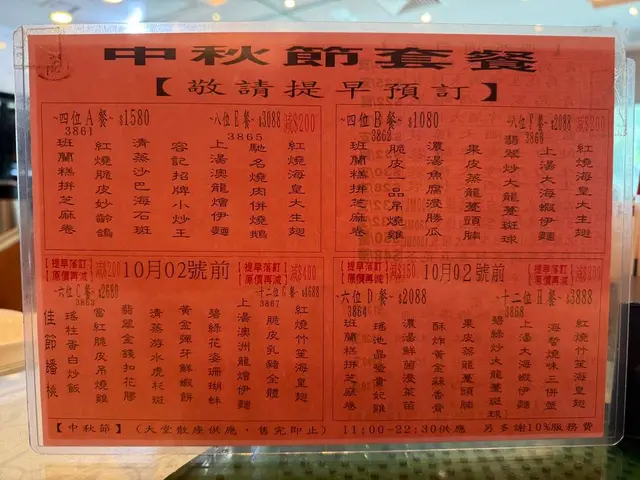 中秋節套餐
【敬請提早預訂】
~四位A餐~ $1580
3861
~八位E餐~ $3088 减$200
3865
紅燒海皇大生翅
馳名燒肉併燒鵝
上湯澳龍燴伊麵
容記招牌小炒王
清蒸沙巴海石斑
紅燒脆皮妙齡鴿
班蘭糕拼芝麻卷
~四位B餐~ $1080
3862
~八位F餐~ $2088 减$200
3866
紅燒海皇大生翅
上湯大海蝦伊麵
翡翠炒大龍躉斑球
果皮蒸龍躉頭腩
濃湯魚腐浸勝瓜
脆皮一品吊燒雞
班蘭糕拼芝麻卷
【提早落訂 原價再減】减$200
10月02號前
【提早落訂 原價再減】减$400
~六位C餐~ $2680
3863
~十二位G餐~ $4688
3867
紅燒竹笙海皇翅
脆皮乳豬全體
上湯澳洲龍燴伊麵
碧綠花姿珊瑚蚌
黃金彈牙鮮蝦餅
清蒸游水虎杉斑
翡翠金錢扣花膠
富紅脆皮吊燒雞
瑤柱香白炒飯
佳節蟠桃
【提早落訂 原價再減】减$150
10月02號前
【提早落訂 原價再減】减$380
~六位D餐~ $2088
3864
~十二位H餐~ $3888
3868
紅燒竹笙海皇翅
海蜇燒味三併盤
上湯大海蝦伊麵
碧綠炒大龍躉斑球
果皮蒸龍躉頭腩
酥炸黃金蒜香骨
濃湯鮮菌浸菜苗
瑤池晶瑩貴妃雞
班蘭糕拼芝麻卷
【中秋節】 (大堂散座供應，售完即止) 11:00-22:30供應 另多謝10%服務費